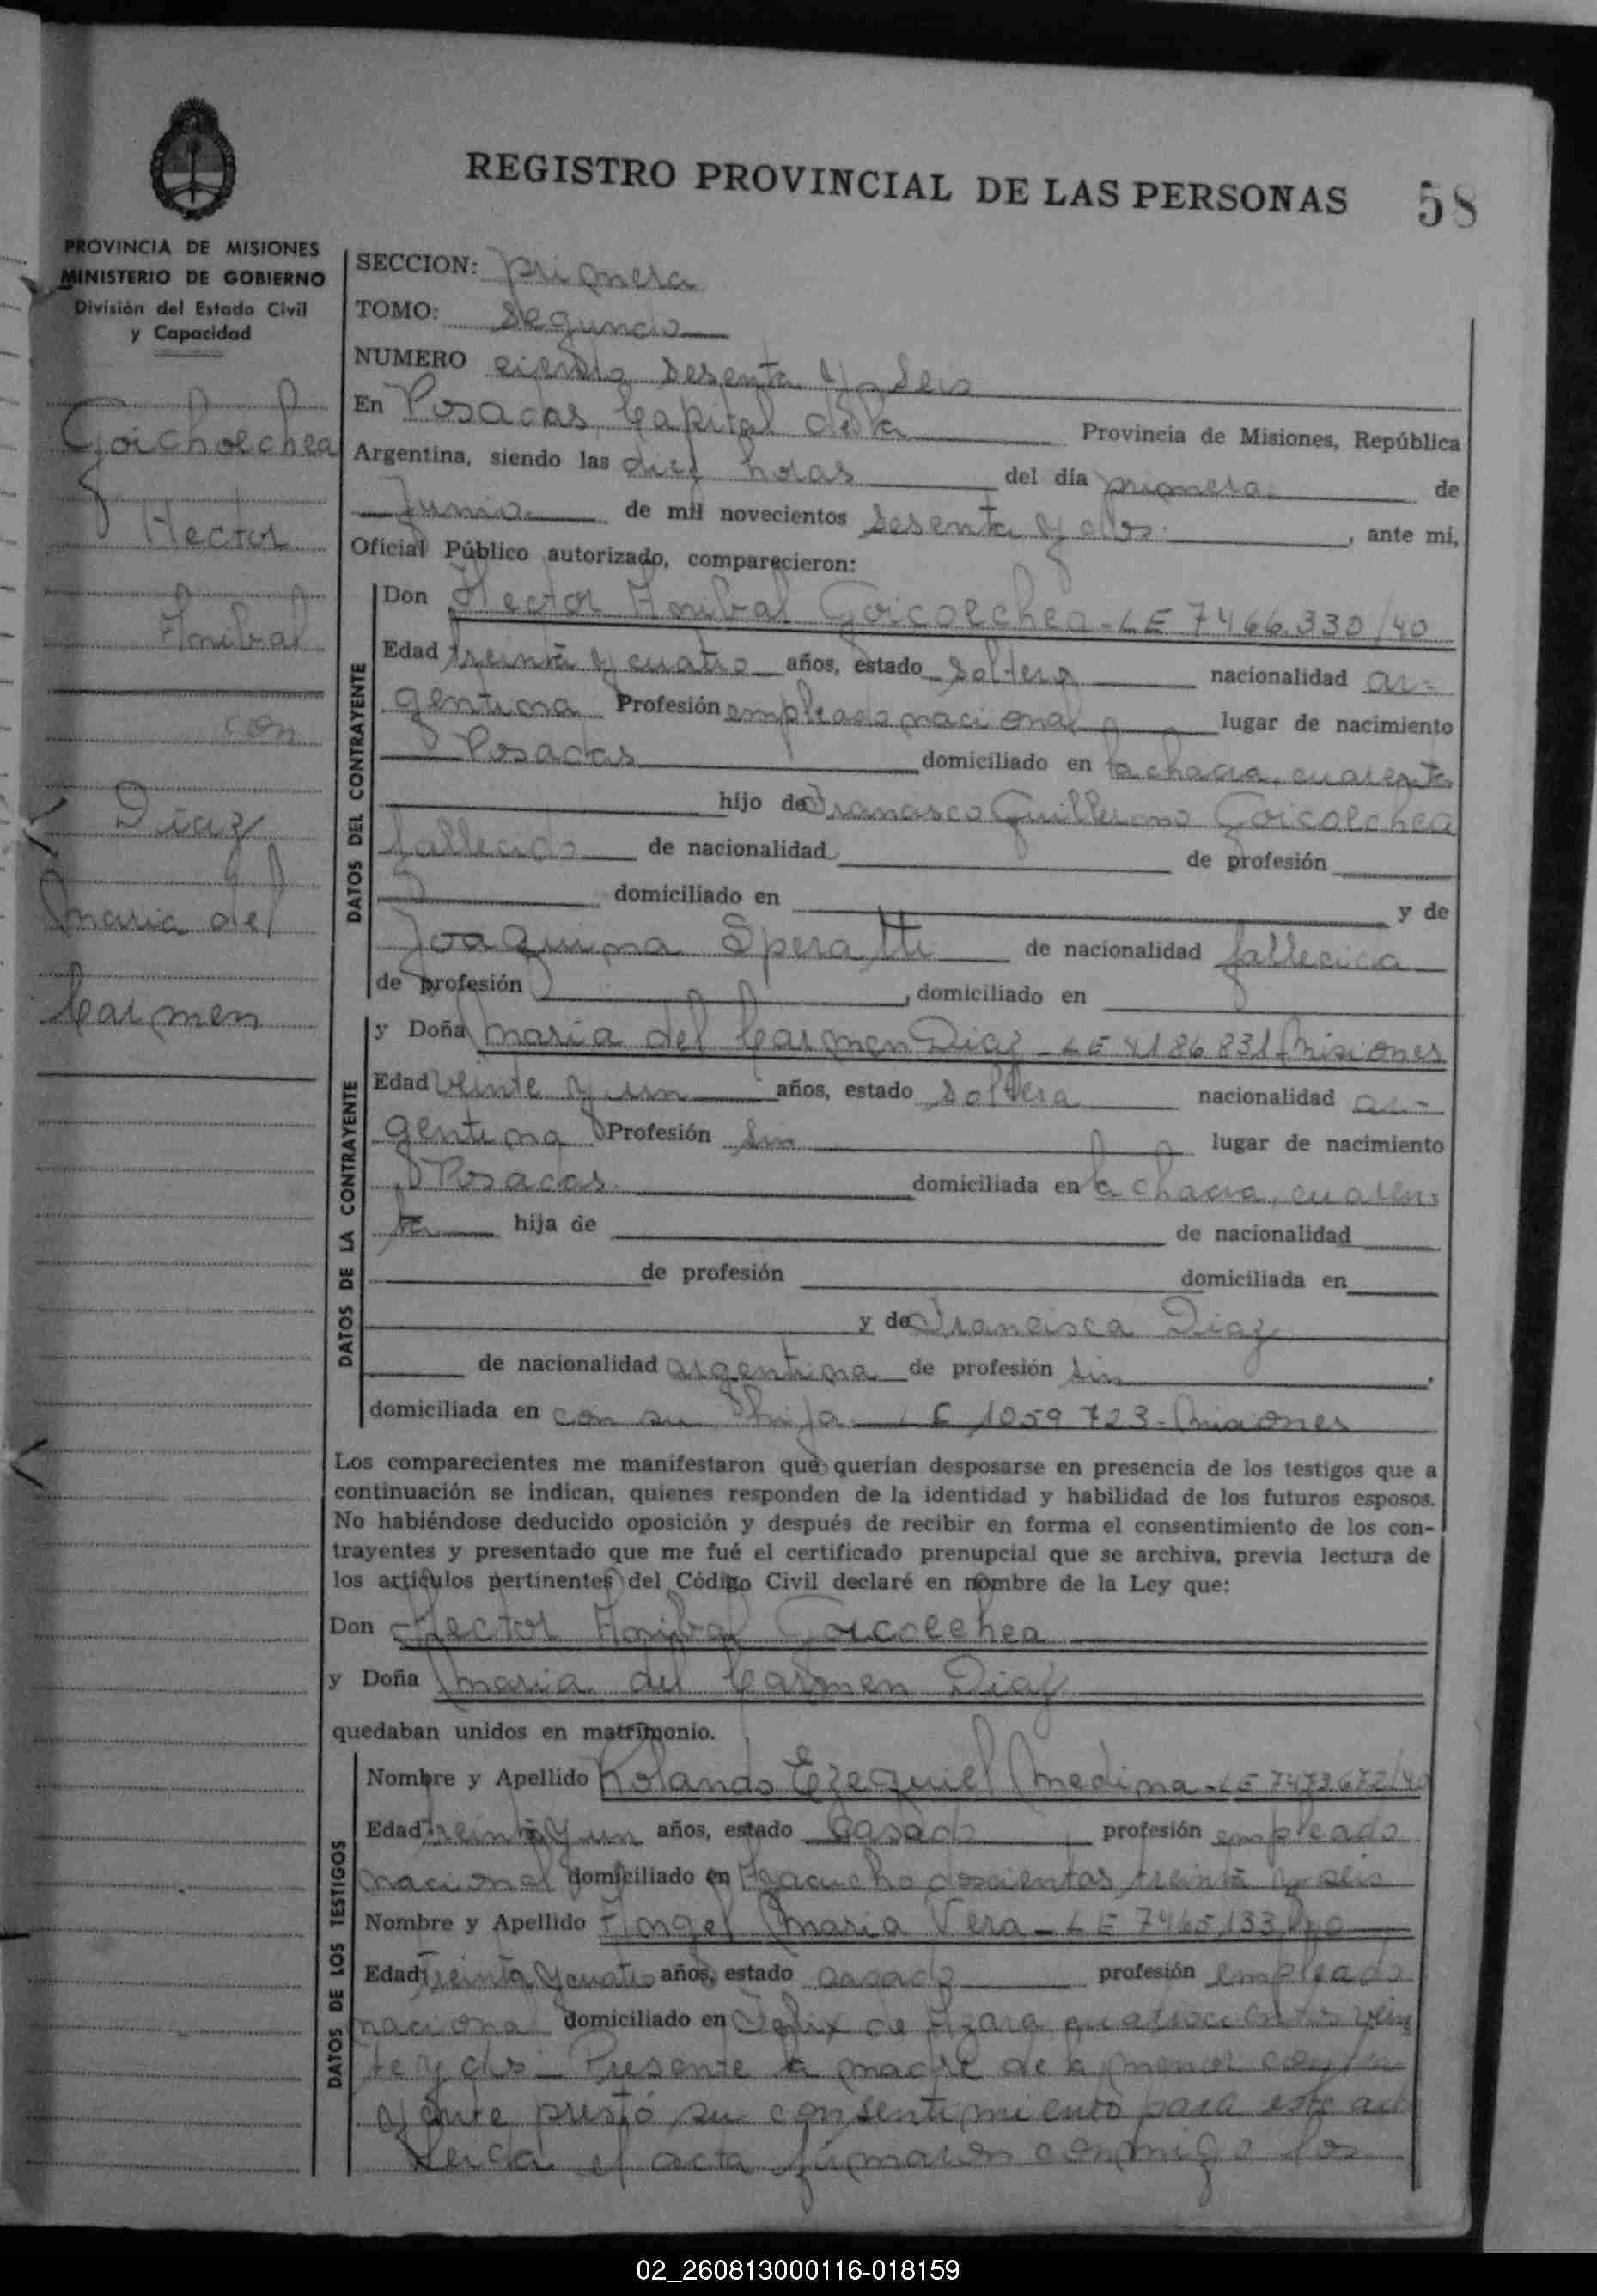 REGISTRO PROVINCIAL DE LAS PERSONAS 58
PROVINCIA DE MISIONES
MINISTERIO DE GOBIERNO
División del Estado Civil
y Capacidad
Goichoechea
Hector
Anibal
con
Diaz
Maria del
Carmen
SECCION: primera
TOMO: segundo
NUMERO ciento sesenta y seis
En Posadas, Capital de la Provincia de Misiones, República
Argentina, siendo las diez horas del día primero de
Junio de mil novecientos sesenta y dos , ante mi,
Oficial Público autorizado, comparecieron:
DATOS DEL CONTRAYENTE
Don Hector Anibal Goicoechea - LE 7466.330/40
Edad treinta y cuatro años, estado soltero nacionalidad ar-
gentina Profesión empleado nacional lugar de nacimiento
Posadas domiciliado en la chacra, cuarenta
hijo de Francisco Guillermo Goicoechea
fallecido de nacionalidad de profesión
domiciliado en y de
Joaquina Speratti de nacionalidad fallecida
de profesión , domiciliado en
DATOS DE LA CONTRAYENTE
y Doña Maria del Carmen Diaz - LE 4186831 Misiones
Edad veinte y un años, estado soltera nacionalidad ar-
gentina Profesión sin lugar de nacimiento
Posadas domiciliada en la chacra, cuaren-
ta hija de de nacionalidad
de profesión domiciliada en
y de Francisca Diaz
de nacionalidad argentina de profesión sin ,
domiciliada en con su hija LC 1059723 - Misiones
Los comparecientes me manifestaron que querían desposarse en presencia de los testigos que a
continuación se indican, quienes responden de la identidad y habilidad de los futuros esposos.
No habiéndose deducido oposición y después de recibir en forma el consentimiento de los con-
trayentes y presentado que me fué el certificado prenupcial que se archiva, previa lectura de
los artículos pertinentes del Código Civil declaré en nombre de la Ley que:
Don Hector Anibal Goicoechea
y Doña Maria del Carmen Diaz
quedaban unidos en matrimonio.
DATOS DE LOS TESTIGOS
Nombre y Apellido Rolando Ezequiel Medina - LE 7473672/40
Edad treinta y un años, estado casado profesión empleado
nacional domiciliado en Ayacucho doscientos treinta y seis
Nombre y Apellido Angel Maria Vera - LE 7465133
Edad treinta y cuatro años, estado casado profesión empleado
nacional domiciliado en Felix de Azara cuatrocientos vein
te y dos - Presente la madre de la menor contra
yente prestó su consentimiento para este acto
Leída el acta firmaron conmigo los
02_260813000116-018159